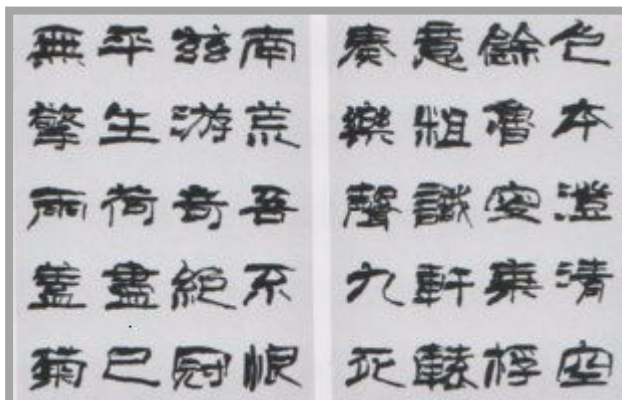 色本澄清空
餘魯叟乘桴
意粗識軒轅
奏樂聲九死
南荒吾不恨
兹游奇絕冠
平生荷盡已
無擎雨蓋菊